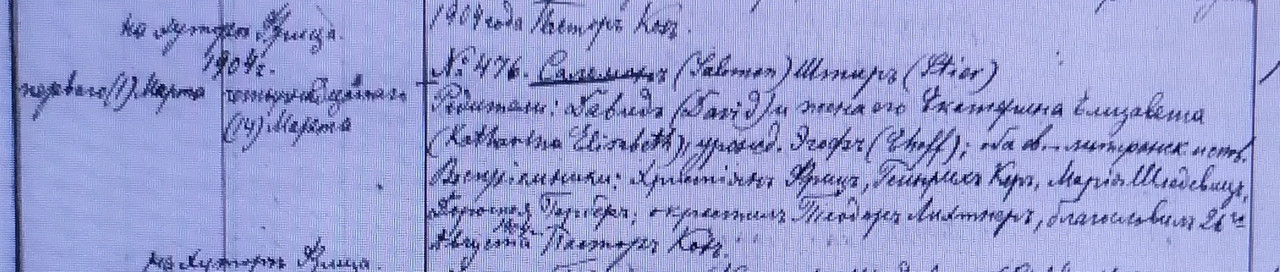 на хуторѣ Фрица.
1904г.
перваго (1) Марта
четырнадцатаго
(14) Марта
1904 года Пасторъ Кохъ.
№ 476. Саломонъ (Salomon) Штиръ (Stier)
Родители: Давидъ (David) и жена его Екатерина Елизавета
(Katharina Elisabeth), урожд. Эгофъ (Ehoff); оба ев.-лютеранск. испов.
Воспріемники: Христіянъ Фрицъ, Гейнрихъ Керъ, Марія
Гербері; окрестилъ Теодоръ Лихтнеръ, благословилъ 26го
Августа 1904г. Пасторъ Кохъ.
на хуторѣ Фрица.